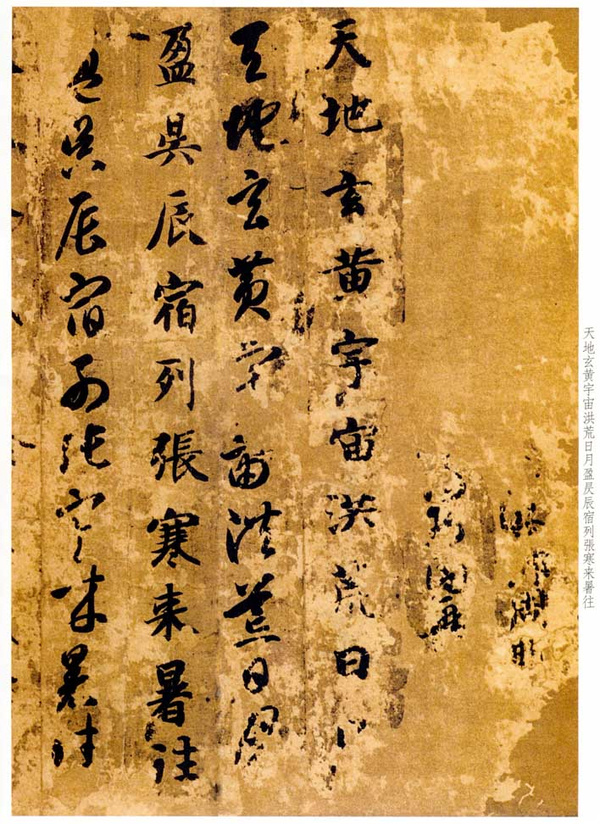 天地玄黄宇宙洪荒日月盈昃辰宿列張寒来暑往
天地玄黄宇宙洪荒日
天地玄黄宇宙洪荒日月
盈昃辰宿列張寒来暑往
盈昃辰宿列張寒来暑往